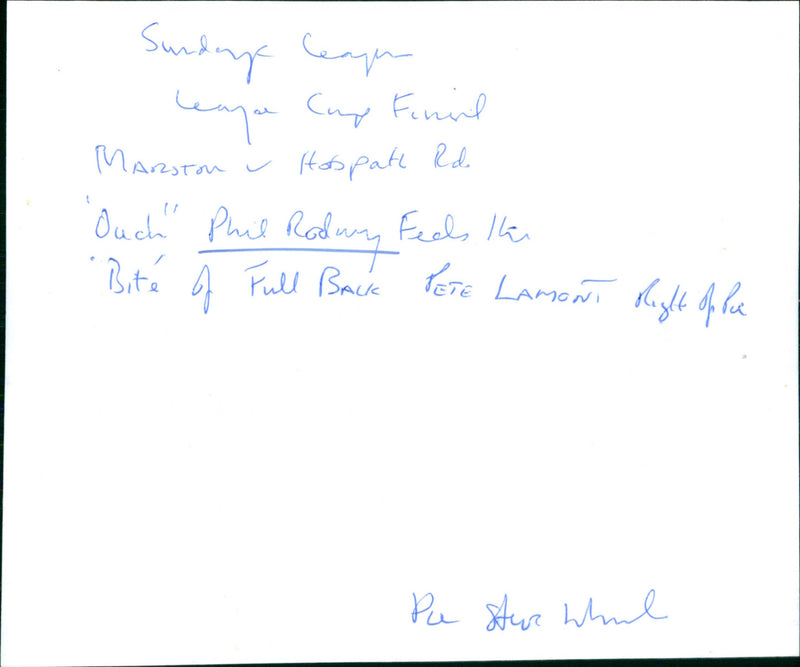 Sunday League
League Cup Final
MARSTON v Hospath Rd.
"Ouch" Phil Rodway Feels the
"Bite" of Full BACK PETE LAMONT Right of Pic
Pic Steve